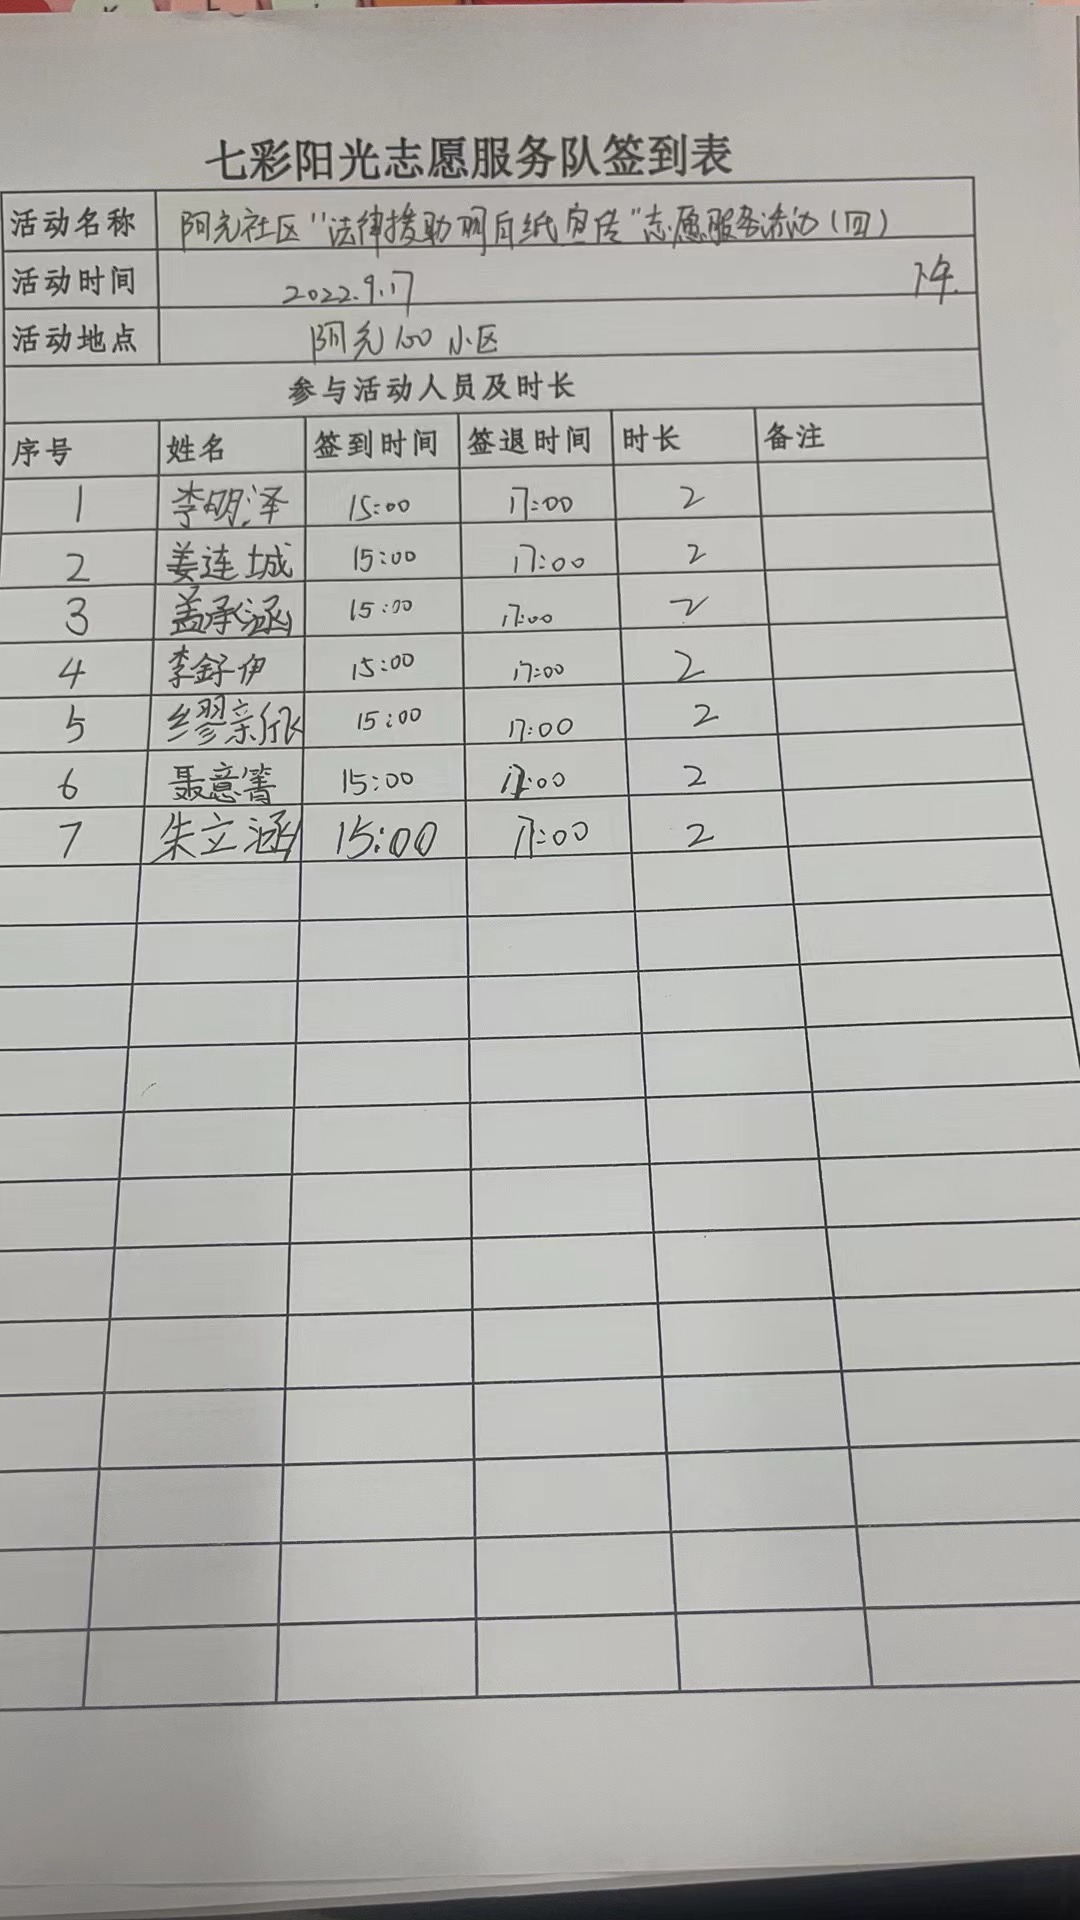 七彩阳光志愿服务队签到表
活动名称 阳光社区“法律援助明白纸宣传”志愿服务活动(四)
活动时间 2022.9.17 下午.
活动地点 阳光100小区
参与活动人员及时长
序号 姓名 签到时间 签退时间 时长 备注
1 李明泽 15:00 17:00 2
2 姜连城 15:00 17:00 2
3 盖承涵 15:00 17:00 2
4 李 伊 15:00 17:00 2
5 缪亲 15:00 17:00 2
6 聂意箐 15:00 17:00 2
7 朱立涵 15:00 17:00 2